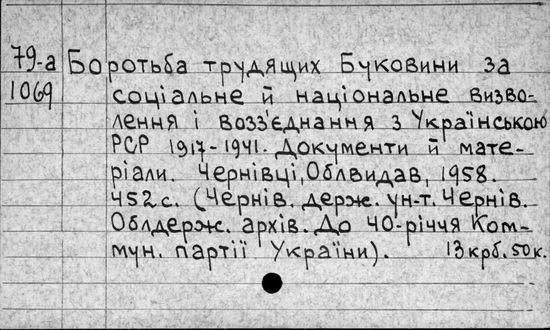 79-а Боротьба трудящих Буковини за
1069 соціальне й національне визво-
лення і возз'єднання з Українською
РСР 1917-1941. Документи й мате-
ріали. Чернівці, Облвидав, 1958.
452 с. (Чернів. держ. ун-т. Чернів.
Облдерж. архів. До 40-річчя Ком-
мун. партії України). 13 крб. 50 к.